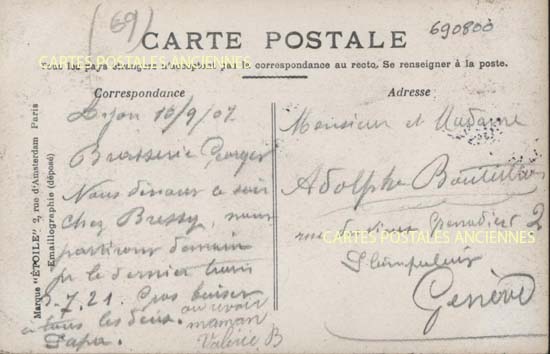 (69)
690800
CARTE POSTALE
CARTES POSTALES ANCIENNES
Tous les pays étrangers n'acceptent pas la correspondance au recto. Se renseigner à la poste.
Correspondance
Adresse
Lyon 16/9/07
Brasserie Georges
Nous dinons ce soir
chez Bressy, nous
partirons demain
pr le dernier train
7.21. Gros baiser
à tous les deux.
Papa.
au revoir
maman
Valérie B
Monsieur et Madame
Adolphe
rue Grenadier 2
CARTES POSTALES ANCIENNES
Genève
Marque "ÉTOILE" 2, rue d'Amsterdam Paris
"Emaillographie (déposé)